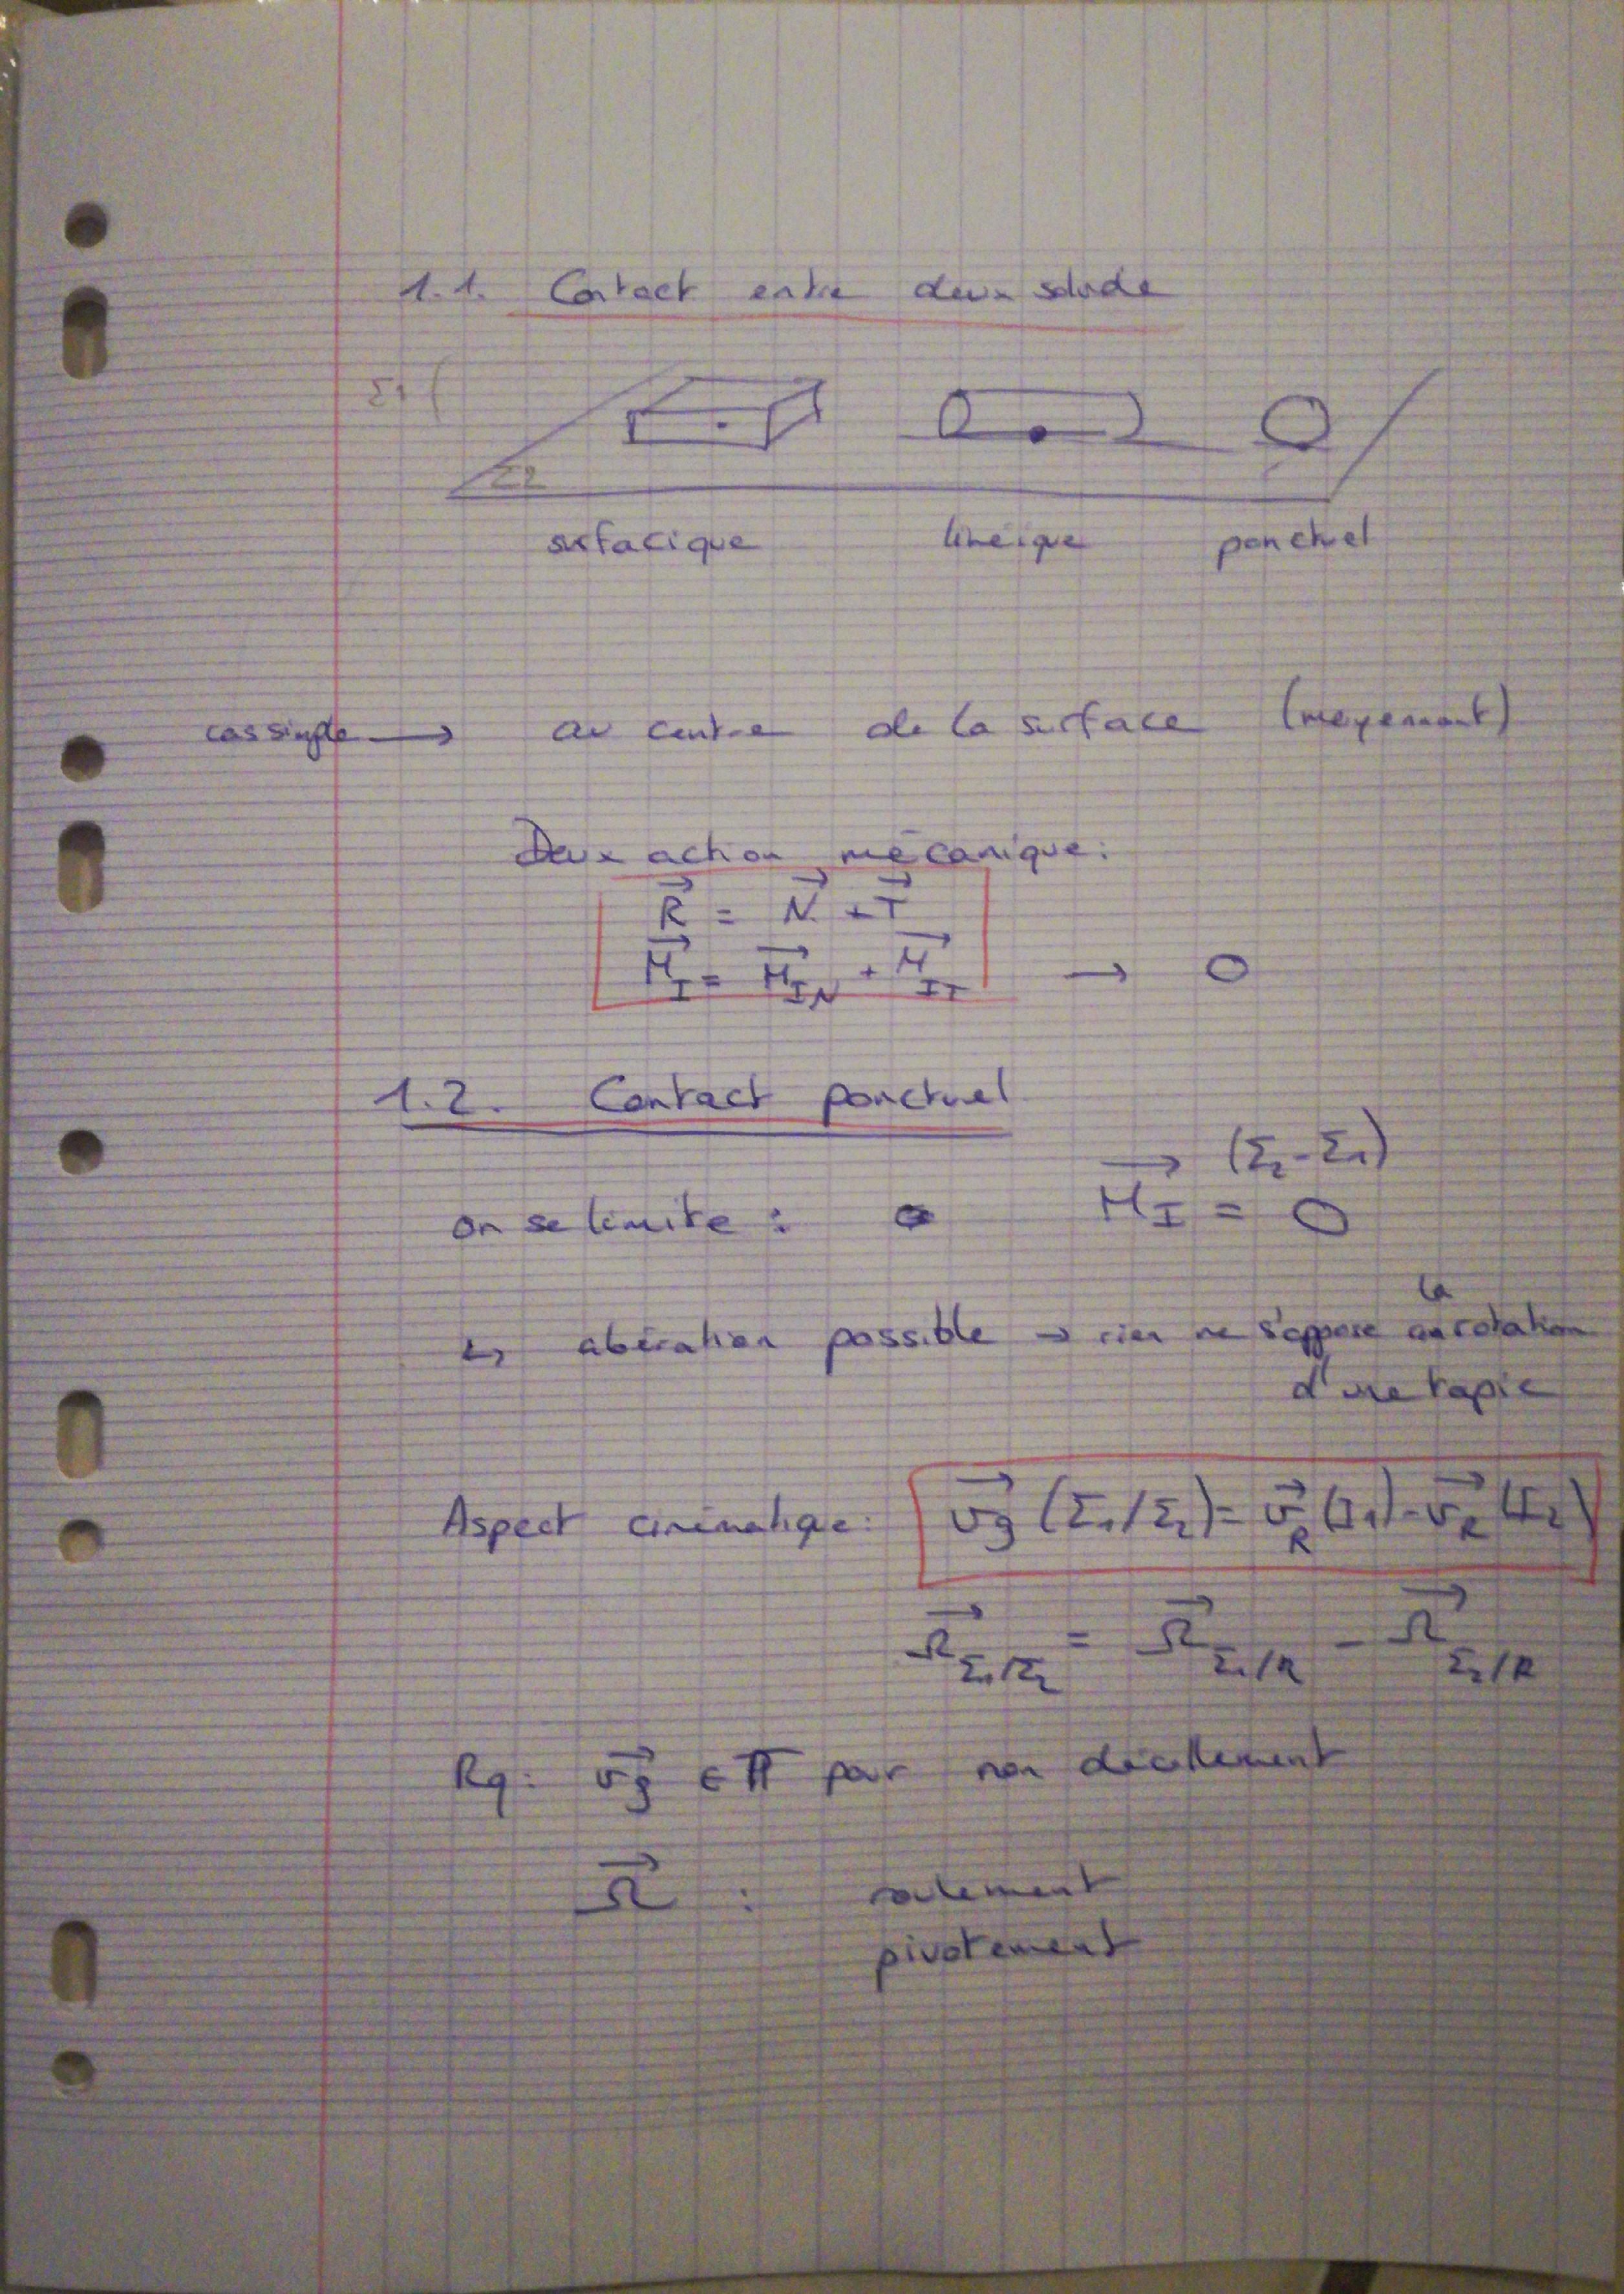 1.1. Contact entre deux solide
Σ1
Σ2
surfacique linéique ponctuel
cas simple → au centre de la surface (moyennant)
Deux action mécanique:
R⃗ = N⃗ + T⃗
M⃗_I = M⃗_IN + M⃗_IT → 0
1.2. Contact ponctuel
on se limite : M⃗_I (Σ2-Σ1) = 0
↳ abération possible → rien ne s'oppose à la rotation
d'une topie
Aspect cinématique: v⃗g (Σ1/Σ2) = v⃗_R (I1) - v⃗_R (I2)
Ω⃗_Σ1/Σ2 = Ω⃗_Σ1/R - Ω⃗_Σ2/R
Rq: v⃗g ∈ π pour non décollement
Ω⃗ : roulement
pivotement